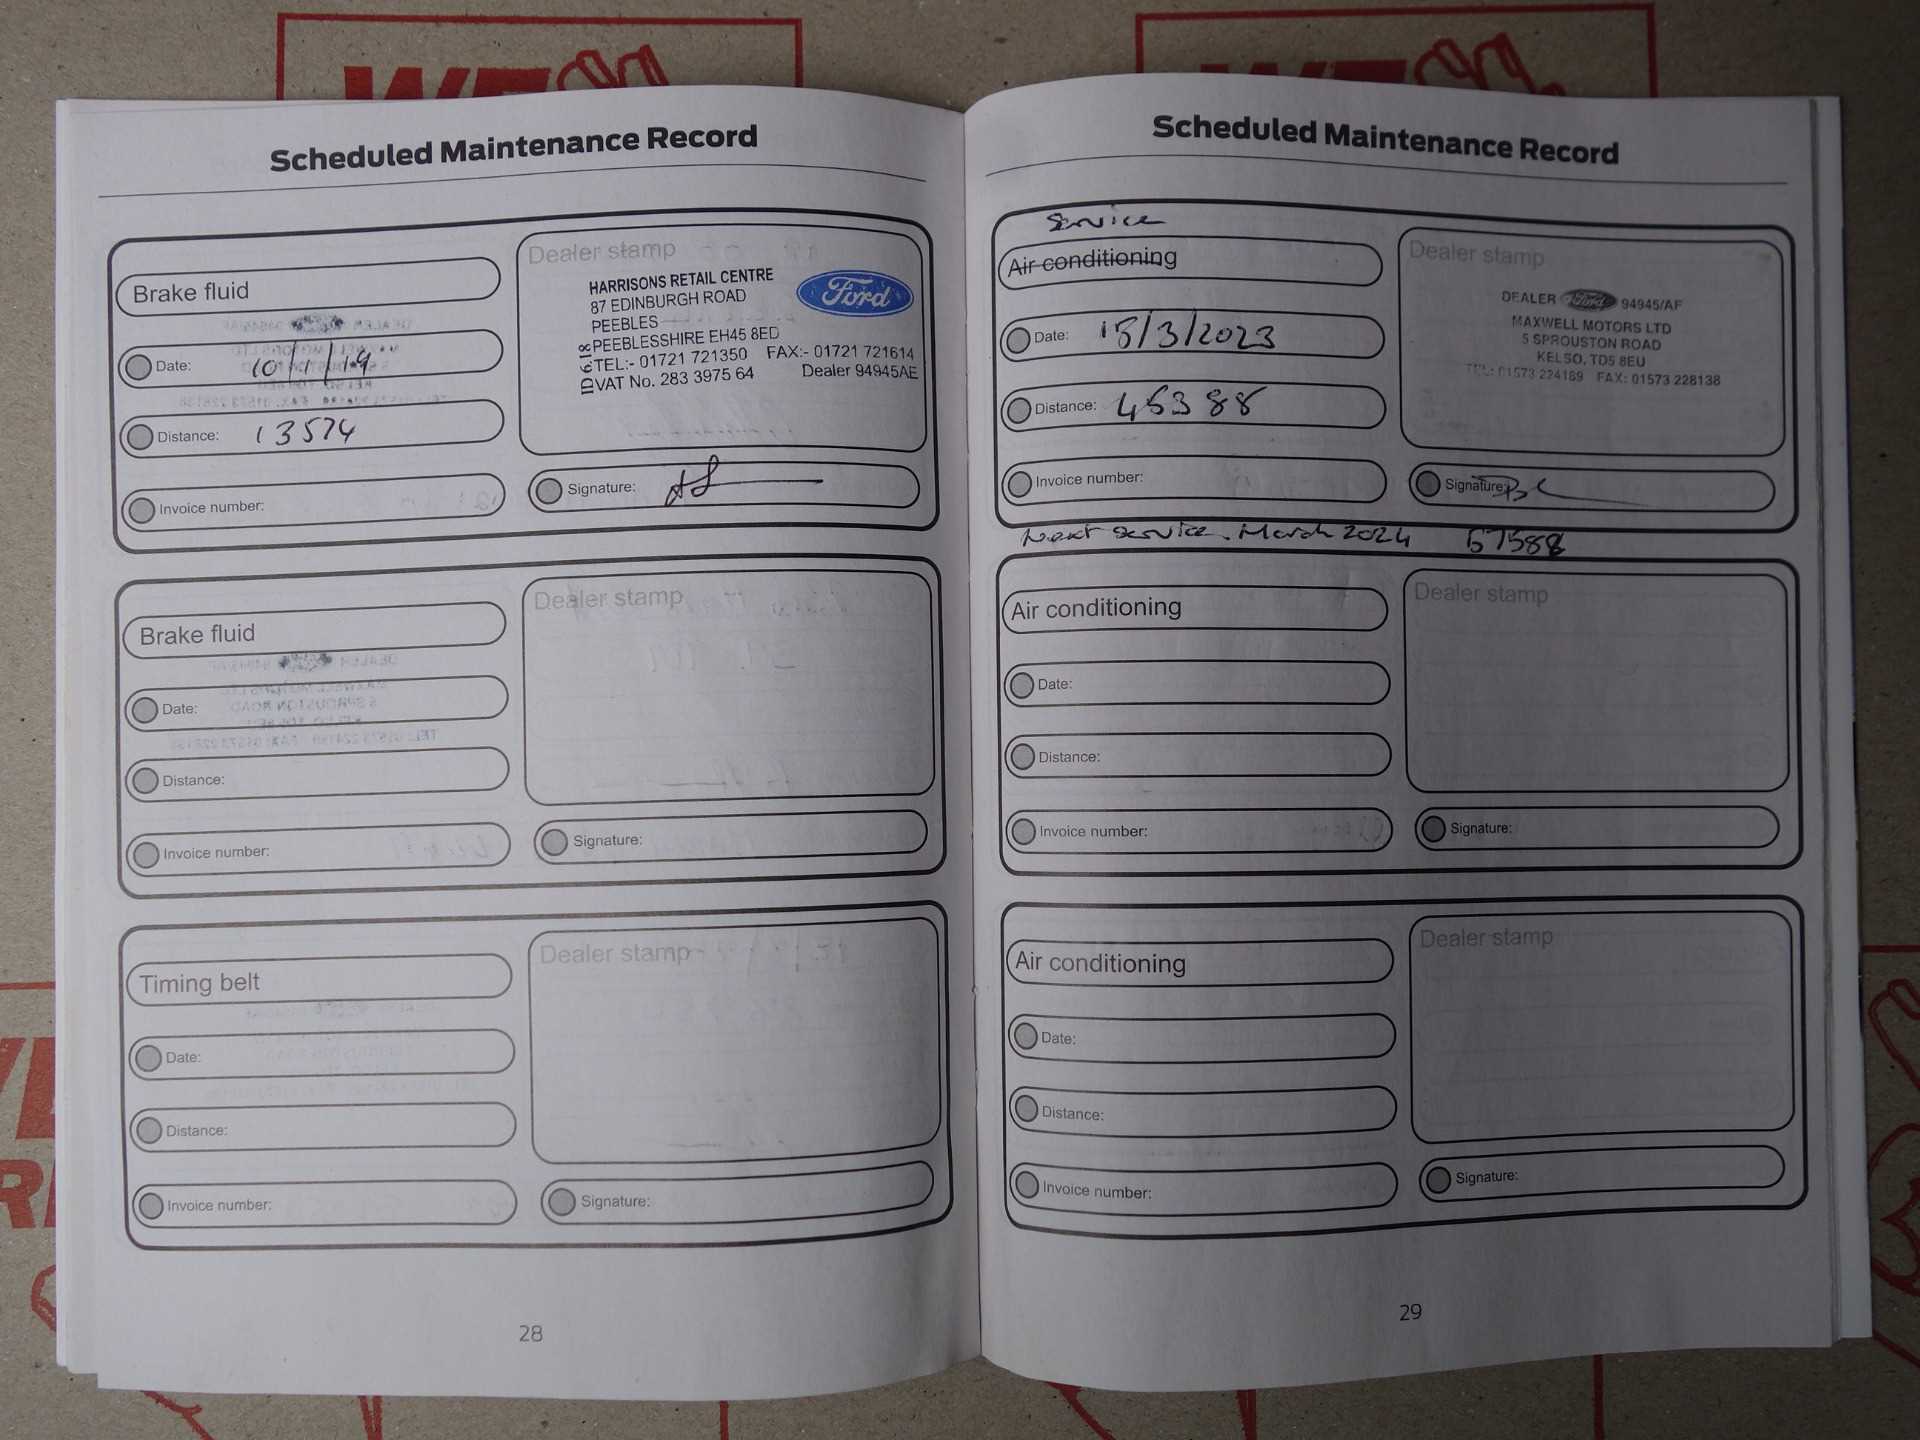 Scheduled Maintenance Record
Brake fluid
Date: 10/1/19
Distance: 13574
Invoice number:
Dealer stamp
HARRISONS RETAIL CENTRE
87 EDINBURGH ROAD
PEEBLES
PEEBLESSHIRE EH45 8ED
TEL:- 01721 721350 FAX:- 01721 721614
VAT No. 283 3975 64 Dealer 94945AE
ID 618
Ford
Signature:
Brake fluid
Date:
Distance:
Invoice number:
Dealer stamp
Signature:
Timing belt
Date:
Distance:
Invoice number:
Dealer stamp
Signature:
28
Scheduled Maintenance Record
Service
Air conditioning
Date: 15/3/2023
Distance: 45388
Invoice number:
Dealer stamp
DEALER Ford 94945/AF
MAXWELL MOTORS LTD
5 SPROUSTON ROAD
KELSO, TD5 8EU
TEL: 01573 224189 FAX: 01573 228138
Signature:
Next service. March 2024 57588
Air conditioning
Date:
Distance:
Invoice number:
Dealer stamp
Signature:
Air conditioning
Date:
Distance:
Invoice number:
Dealer stamp
Signature:
29